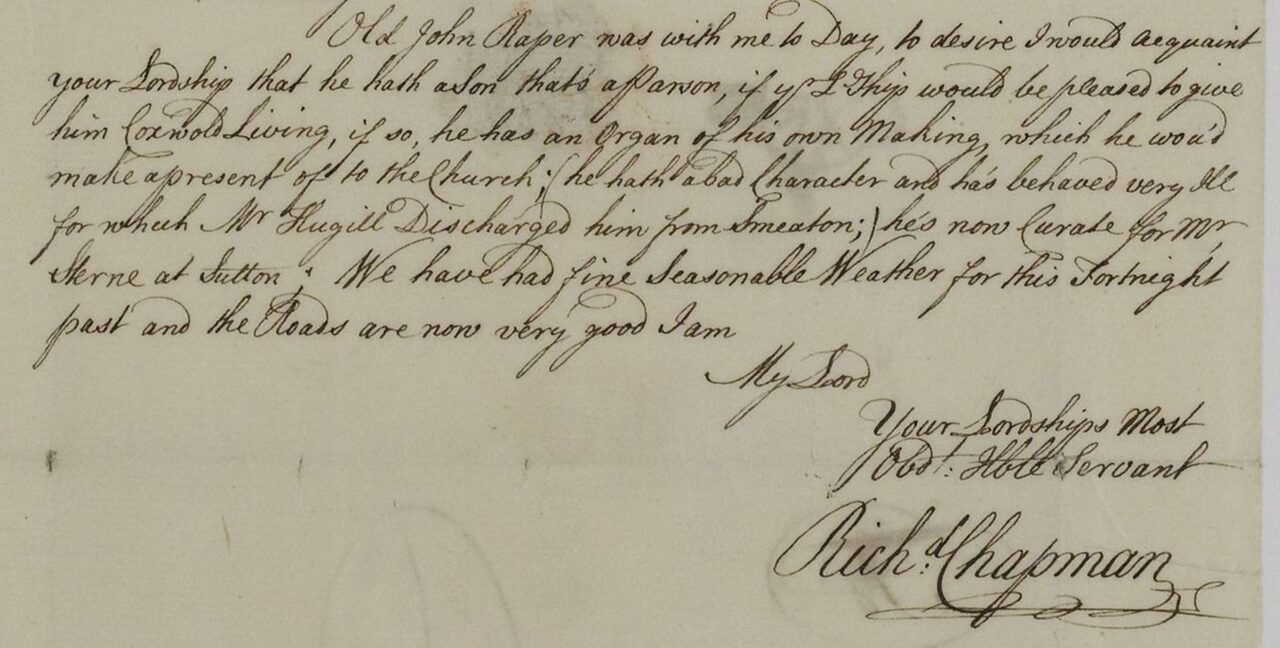 Old John Raper was with me to Day, to desire I would acquaint
your Lordship that he hath a Son that's a Parson, if yr L'Ship would be pleased to give
him Coxwold Living, if so, he has an Organ of his own Making, which he wou'd
make a present of to the Church; (he hath a bad Character and ha's behaved very Ill
for which Mr Hugill Discharged him from Smeaton;) he's now Curate for Mr
Sterne at Sutton; We have had fine Seasonable Weather for this Fortnight
past and the Roads are now very good I am
My Lord
Your Lordships Most
Obdt: Hble Servant
Richd: Chapman